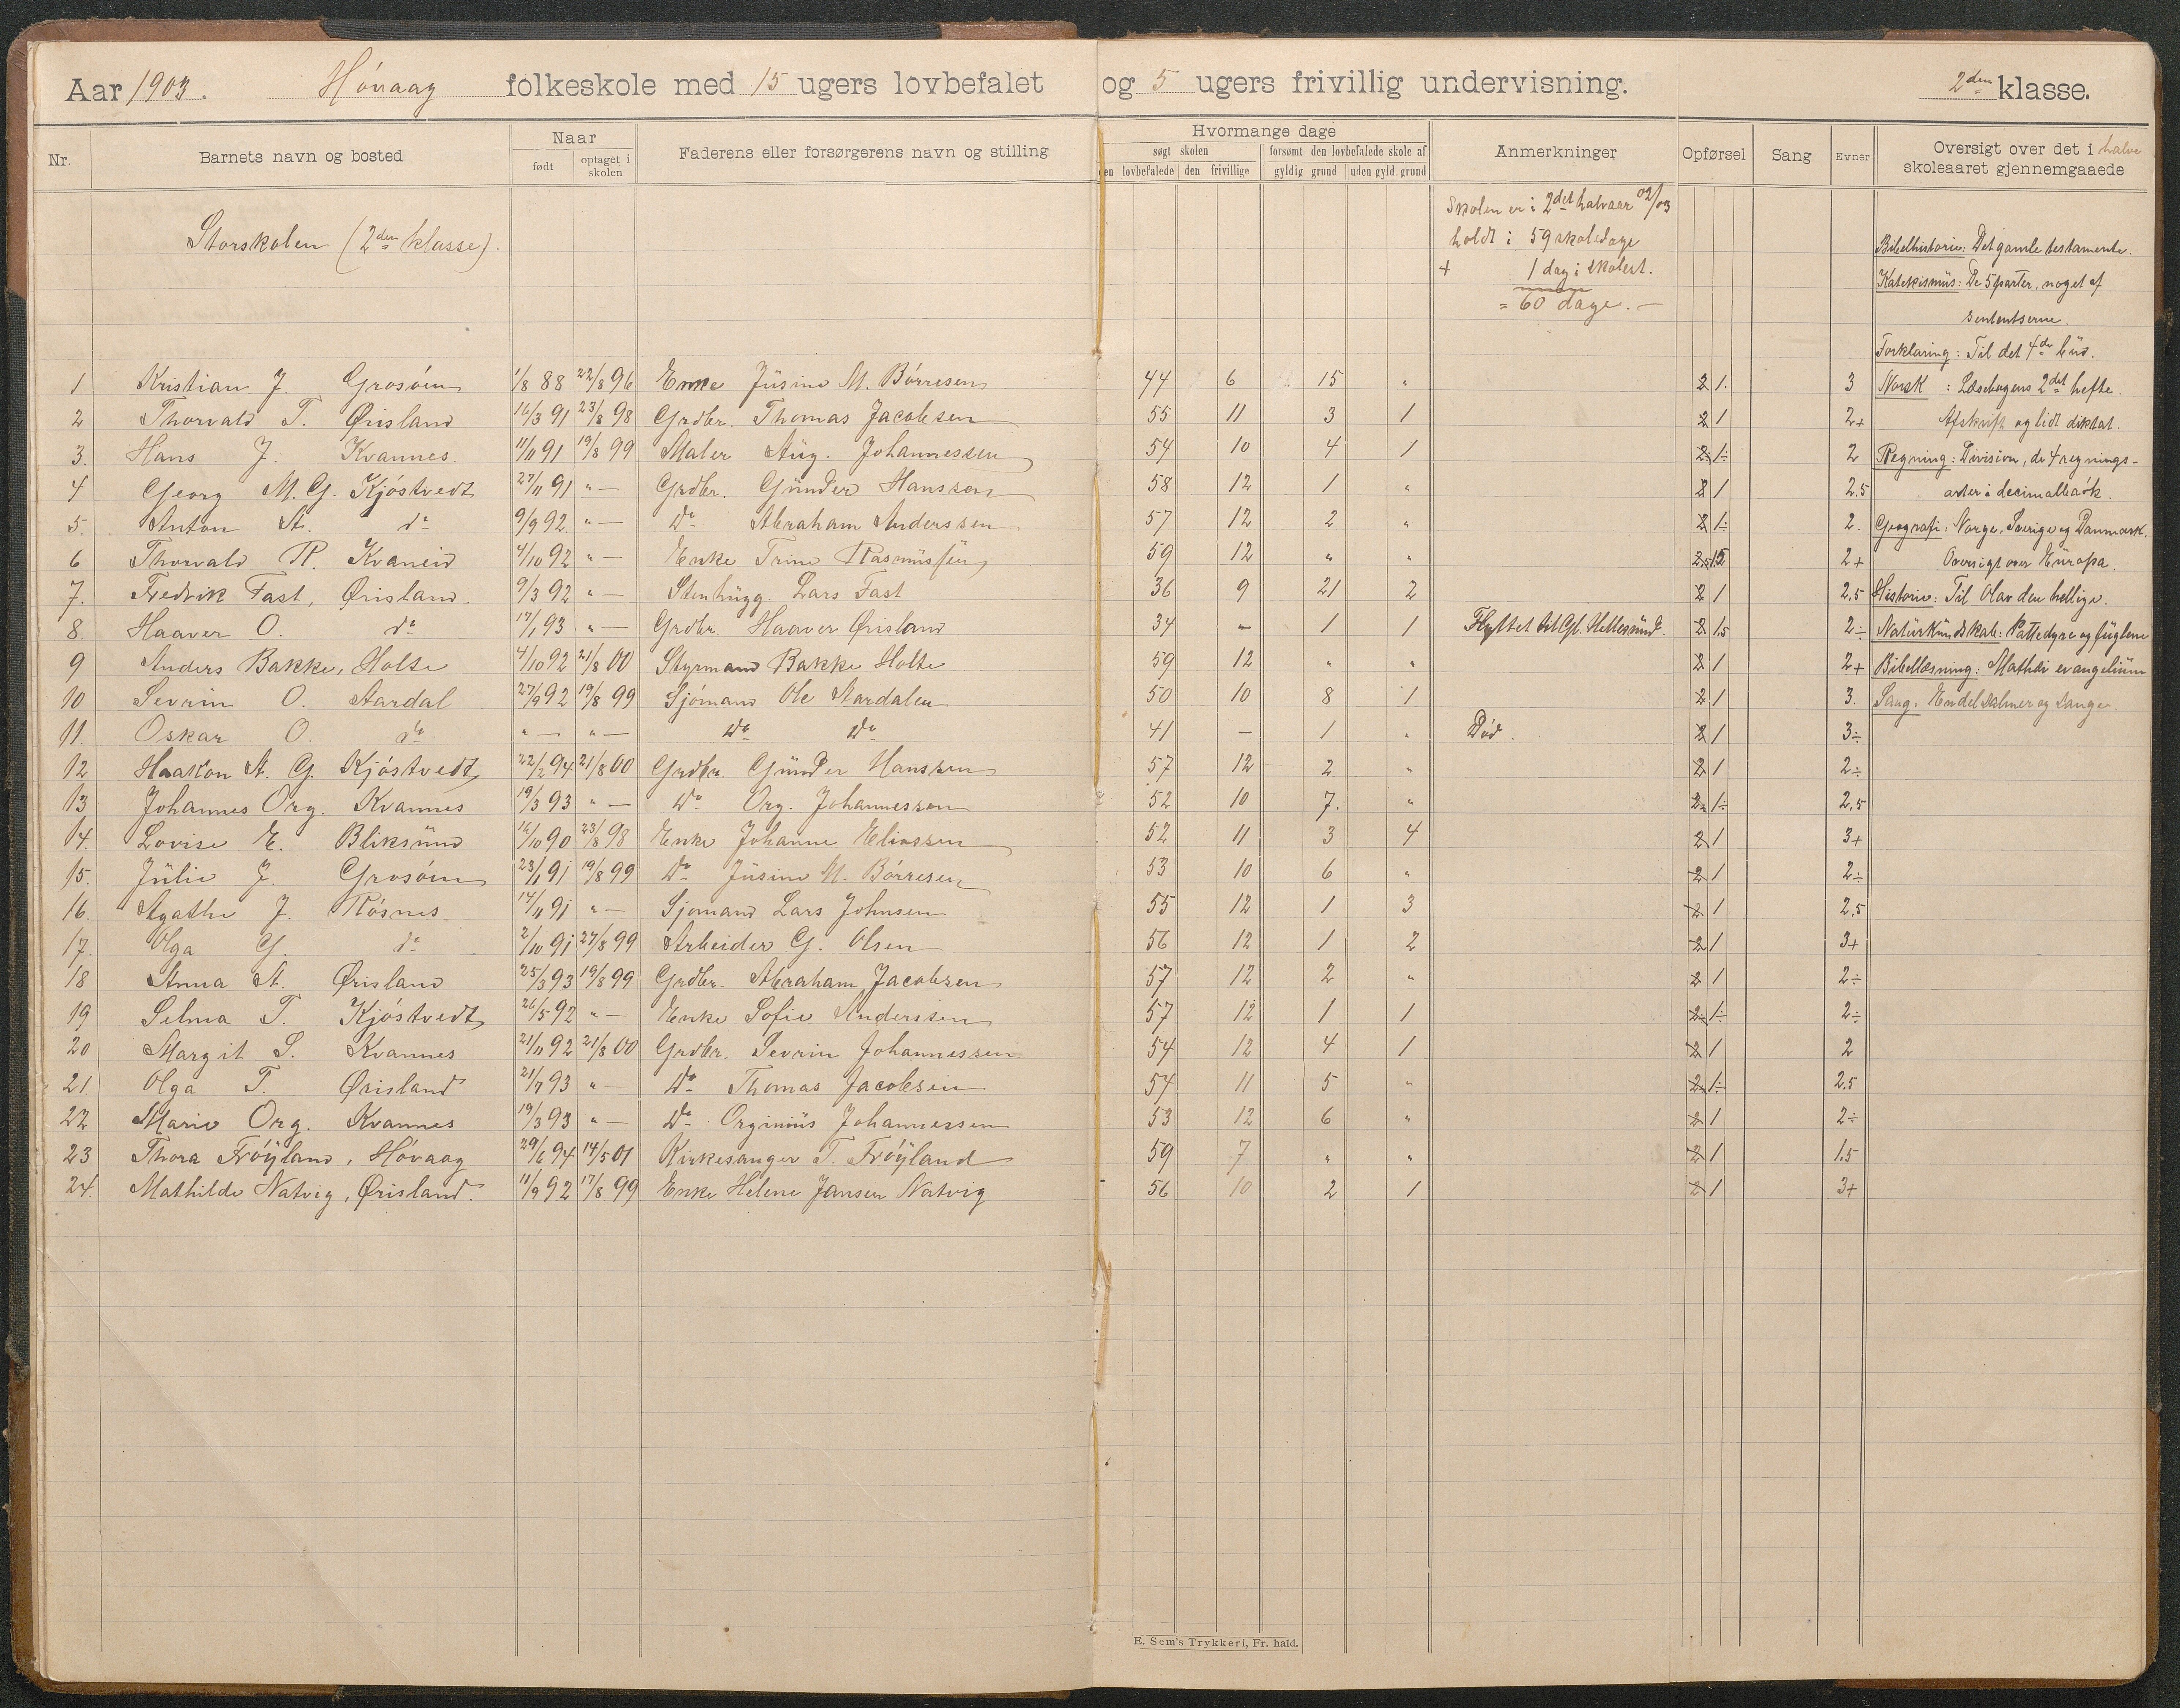 Aar 1903. Hóvaag folkeskole med 15 ugers lovbefalet og 5 ugers frivillig undervisning. 2den klasse.
Nr. Barnets navn og bosted Naar født optaget i skolen Faderens eller forsørgerens navn og stilling Hvormange dage søgt skolen den lovbefalede den frivillige forsømt den lovbefalede skole af gyldig grund uden gyld. grund Anmerkninger Opførsel Sang Evner Oversigt over det i halve skoleaaret gjennemgaaede
Storskolen (2den klasse).
Skolen er i 2det halvaar 02/03
holdt i 59 skoledage
+ 1 dag i skolest.
= 60 dage. —
Bibelhistorie: Det gamle testamente.
Katekismus: De 5 parter, noget af
sententserne.
Forklaring: Til det 4de bud.
1 Kristian J. Grosóen 1/8 88 22/8 96 Enke Jüsine M. Bórresen 44 6 15 " 2 1. 3 Norsk : Læsebogens 2det hefte.
2 Thorvald T. Ørisland 16/3 91 23/8 98 Grdbr. Thomas Jacobsen 55 11 3 1 2 1 2+ Afskrift og lidt diktat.
3. Hans J. Kvannes. 11/11 91 19/8 99 Maler Aüg. Johannessen 54 10 4 1 2÷ 1÷ 2 Regning: Division, de 4 regnings-
4 Georg M. G. Kjóstvedt 27/11 91 " — Grdbr. Günder Hanssen 58 12 1 " 2 1 2.5 arter i decimalbrók.
5. Anton A. do 9/9 92 " — Do Abraham Anderssen 57 12 2 " 2 1÷ 2. Geografi: Norge, Sverige og Danmark.
6 Thorvald R. Kvaneid 4/10 92 " — Enke Trine Rasmüssen 59 12 " " 2,5 1,5 2+ Oversigt over Europa.
7. Fredrik Fast, Ørisland. 9/3 92 " — Stenhügg. Lars Fast 36 9 21 2 2 1 2.5 Historie: Til Olav den hellige.
8. Haaver O. do 17/1 93 " — Grdbr. Haaver Ørisland 34 — 1 1 Flyttet til Gl. Hellesund. 2 1.5 2÷ Natürkundskab: Pattedyre og füglene
9 Anders Bakke, Holte 4/10 92 21/8 00 Styrmand Bakke Holte 59 12 " " 2 1 2+ Bibellæsning: Mathæi evangeliüm
10 Sevrin O. Aardal 27/9 92 19/8 99 Sjómand Ole Aardalen 50 10 8 1 2 1 3. Sang: En del salmer og sange.
11. Oskar O. do " — " — Do Do 41 — 1 " Død. 2 1 3÷
12 Haakon A. G. Kjóstvedt 22/2 94 21/8 00 Grdbr. Günder Hanssen 57 12 2 " 2 1 2÷
13 Johannes Org. Kvannes 19/3 93 " — Do Org. Johannessen 52 10 7. " 2÷ 1÷ 2,5
14. Lovise E. Bliksünd 16/10 90 23/8 98 Enke Johanne Eliassen 52 11 3 4 2 1 3+
15. Jülie J. Grosóen 23/1 91 19/8 99 Do Jüsine M. Bórresen 53 10 6 " 2 1 2÷
16. Agathe J. Rósnes 14/11 91 " — Sjómand Lars Johnsen 55 12 1 3 2 1 2,5
17. Olga G. do 2/10 91 27/8 99 Arbeider G. Olsen 56 12 1 2 2 1 3+
18 Anna A. Ørisland 25/3 93 19/8 99 Grdbr. Abraham Jacobsen 57 12 2 " 2 1 2÷
19 Selma T. Kjóstvedt 26/5 92 " — Enke Sofie Anderssen 57 12 1 1 2÷ 1÷ 2÷
20 Margit S. Kvannes 21/11 92 21/8 00 Grdbr. Sevrin Johannessen 54 12 4 1 2 1 2
21. Olga T. Ørisland 21/7 93 " — Do Thomas Jacobsen 54 11 5 " 2 1÷ 2.5
22 Marie Org. Kvannes 19/3 93 " — Do Orginiüs Johannessen 53 12 6 " 2 1 2÷
23 Thora Fróyland, Hóvaag 29/6 94 14/5 01 Kirkesanger T. Fróyland 59 7 " " 2 1 1.5
24. Mathilde Natvig, Ørisland. 11/9 92 17/8 99 Enke Helene Jansen Natvig 56 10 2 1 2 1 3+
E. Sem's Trykkeri, Fr. hald.